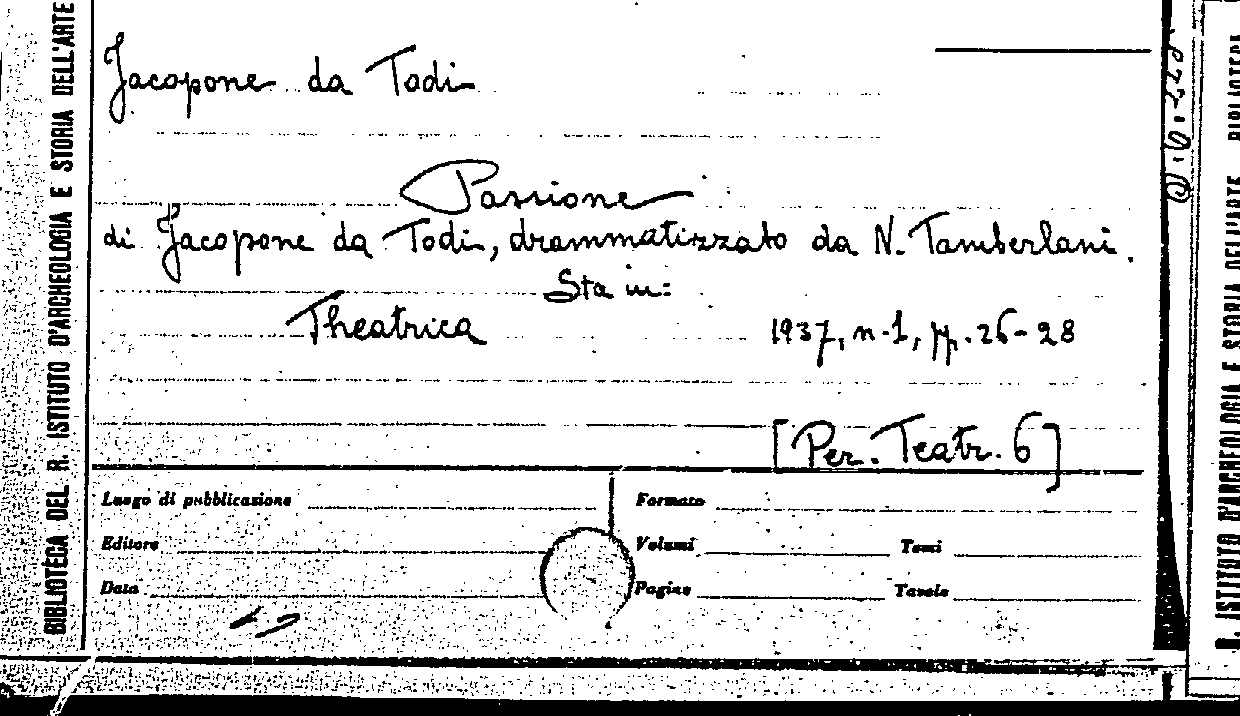 BIBLIOTECA DEL R. ISTITUTO D'ARCHEOLOGIA E STORIA DELL'ARTE
Jacopone da Todi
Passione
di Jacopone da Todi, drammatizzato da N. Tamberlani.
Sta in:
Theatrica 1937, n-1, pp. 26-28
[Per. Teatr. 6]
Luogo di pubblicazione Formato
Editore Volumi Tomi
Data Pagine Tavole
R. ISTITUTO D'ARCHEOLOGIA E STORIA DELL'ARTE BIBLIOTECA